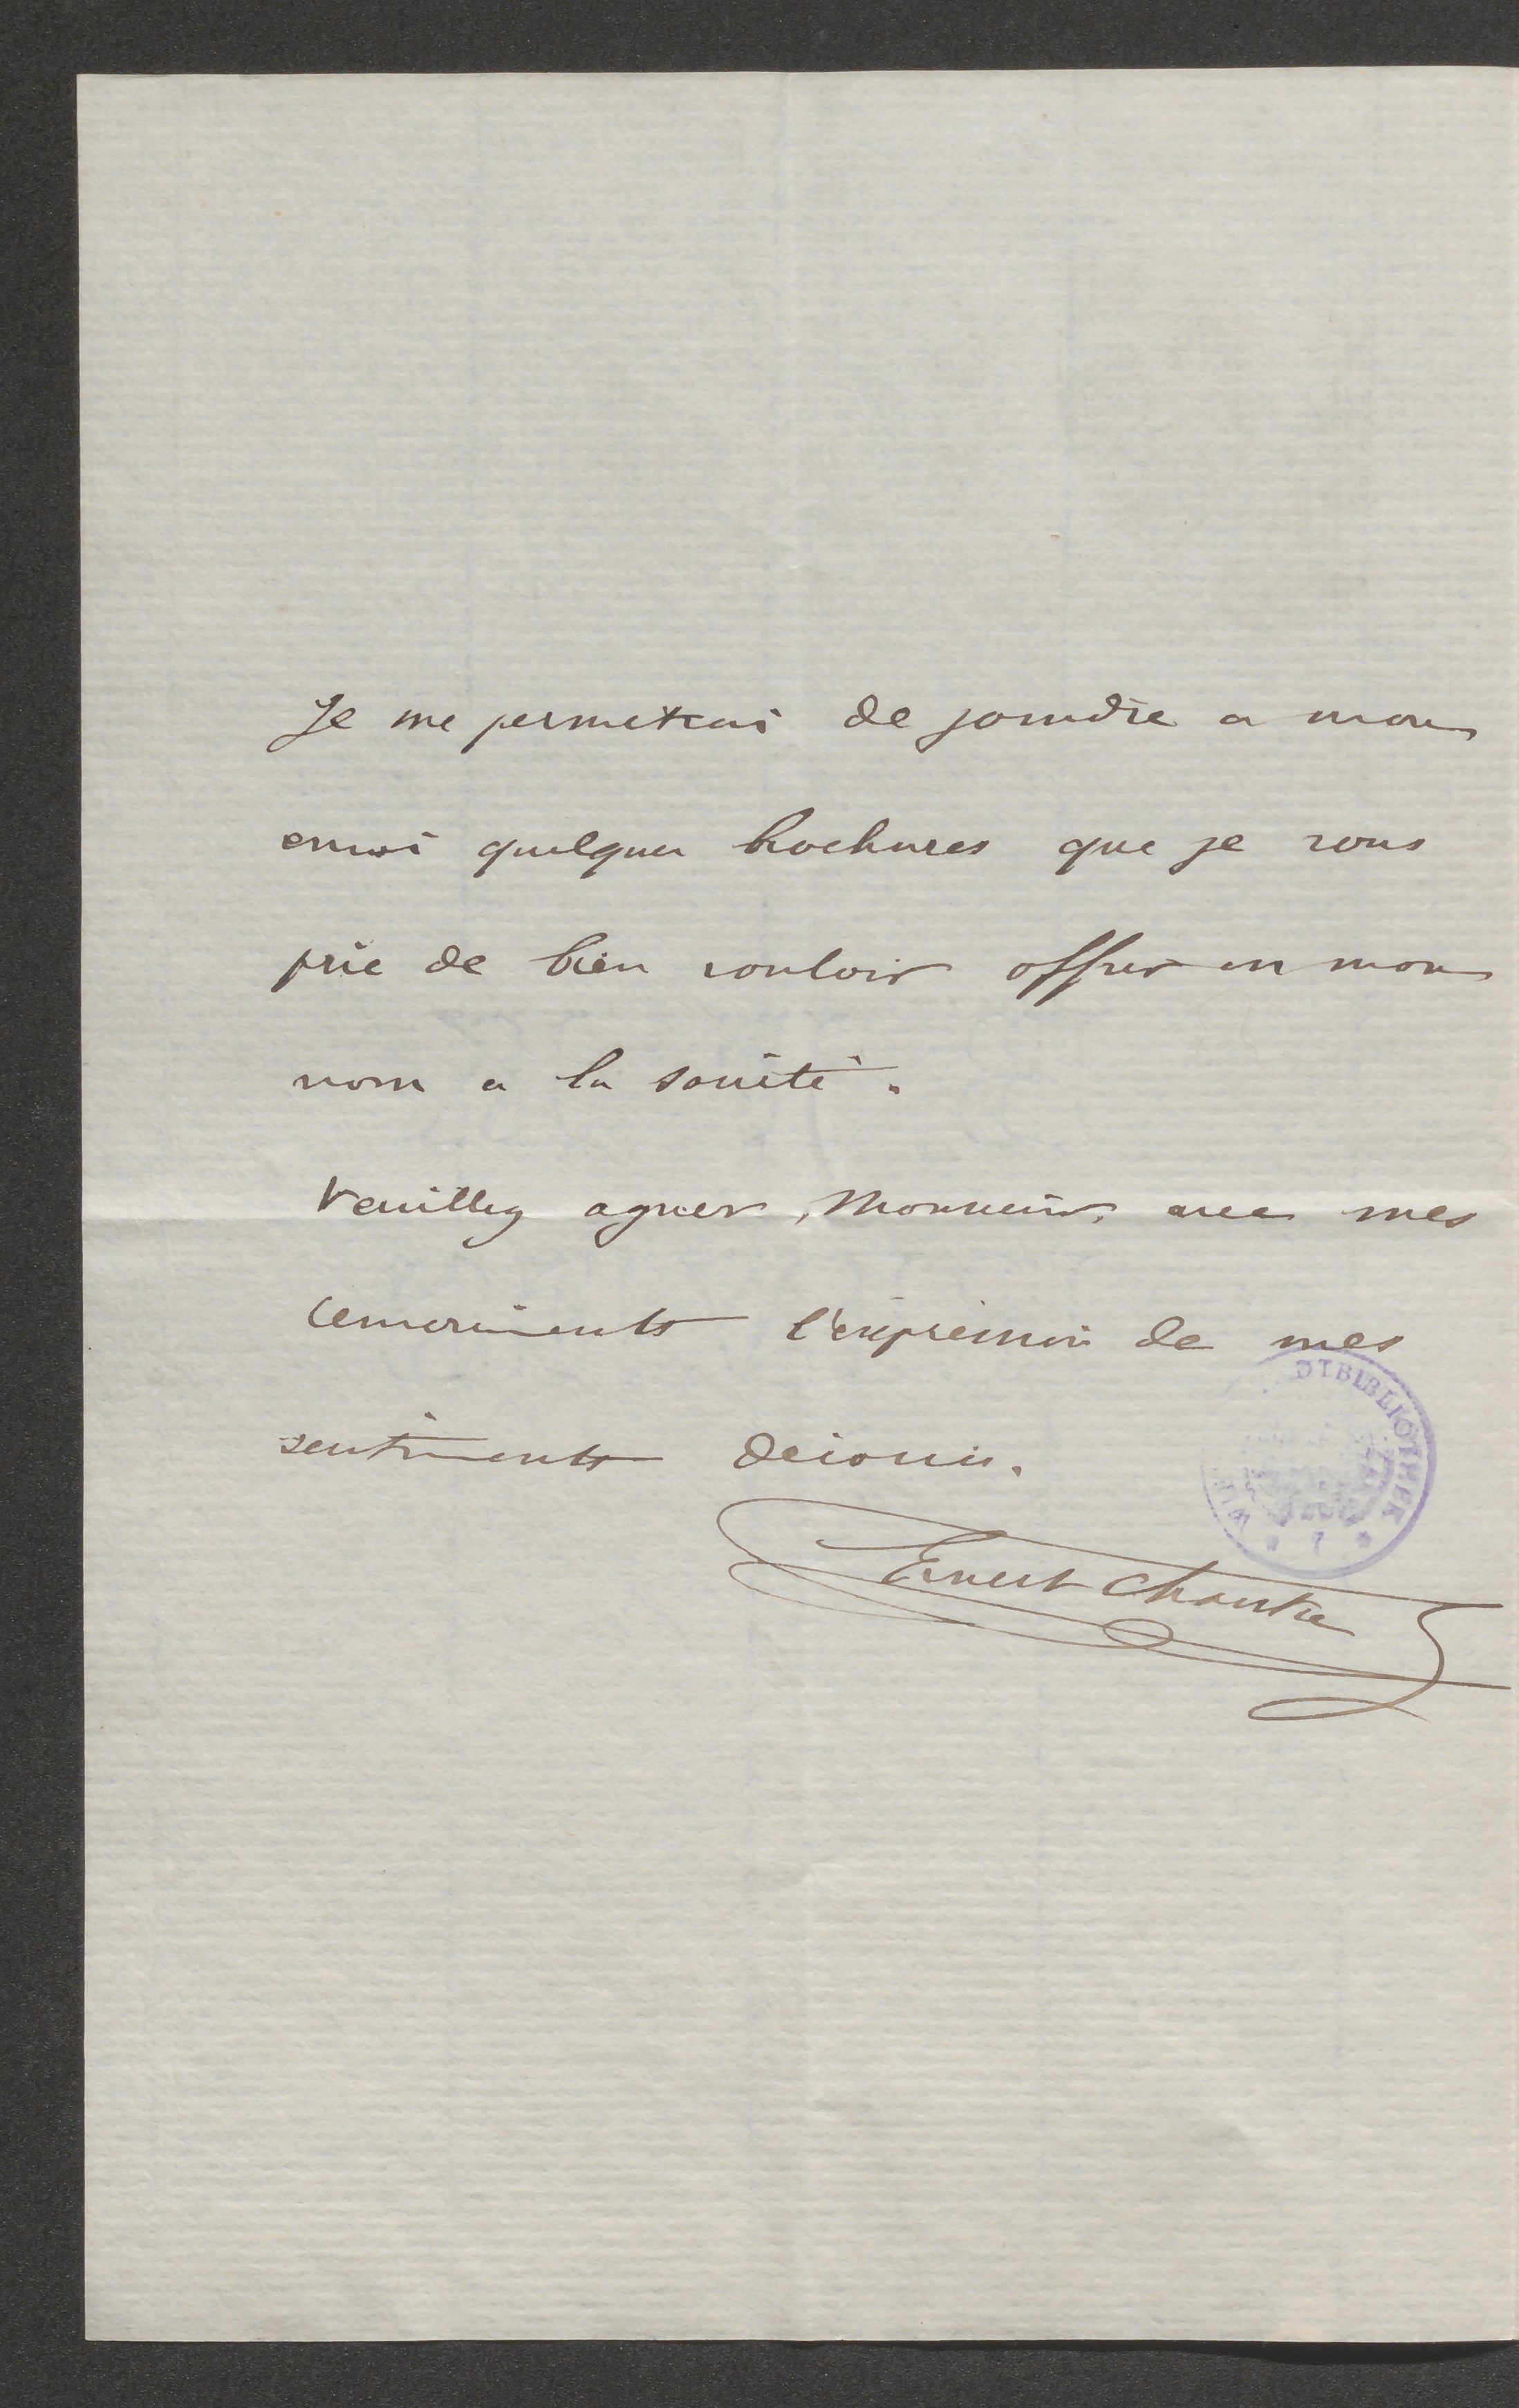 Je me permetrai de joindre a mon
envoi quelques brochures que je vous
prie de bien vouloir offrir en mon
nom a la société.
Veuillez agréer, Monsieur, avec mes
remerciments l'expression de mes
sentiments dévoués.
DTBIBLIOTHEK
WIEN
Ernest Chantre